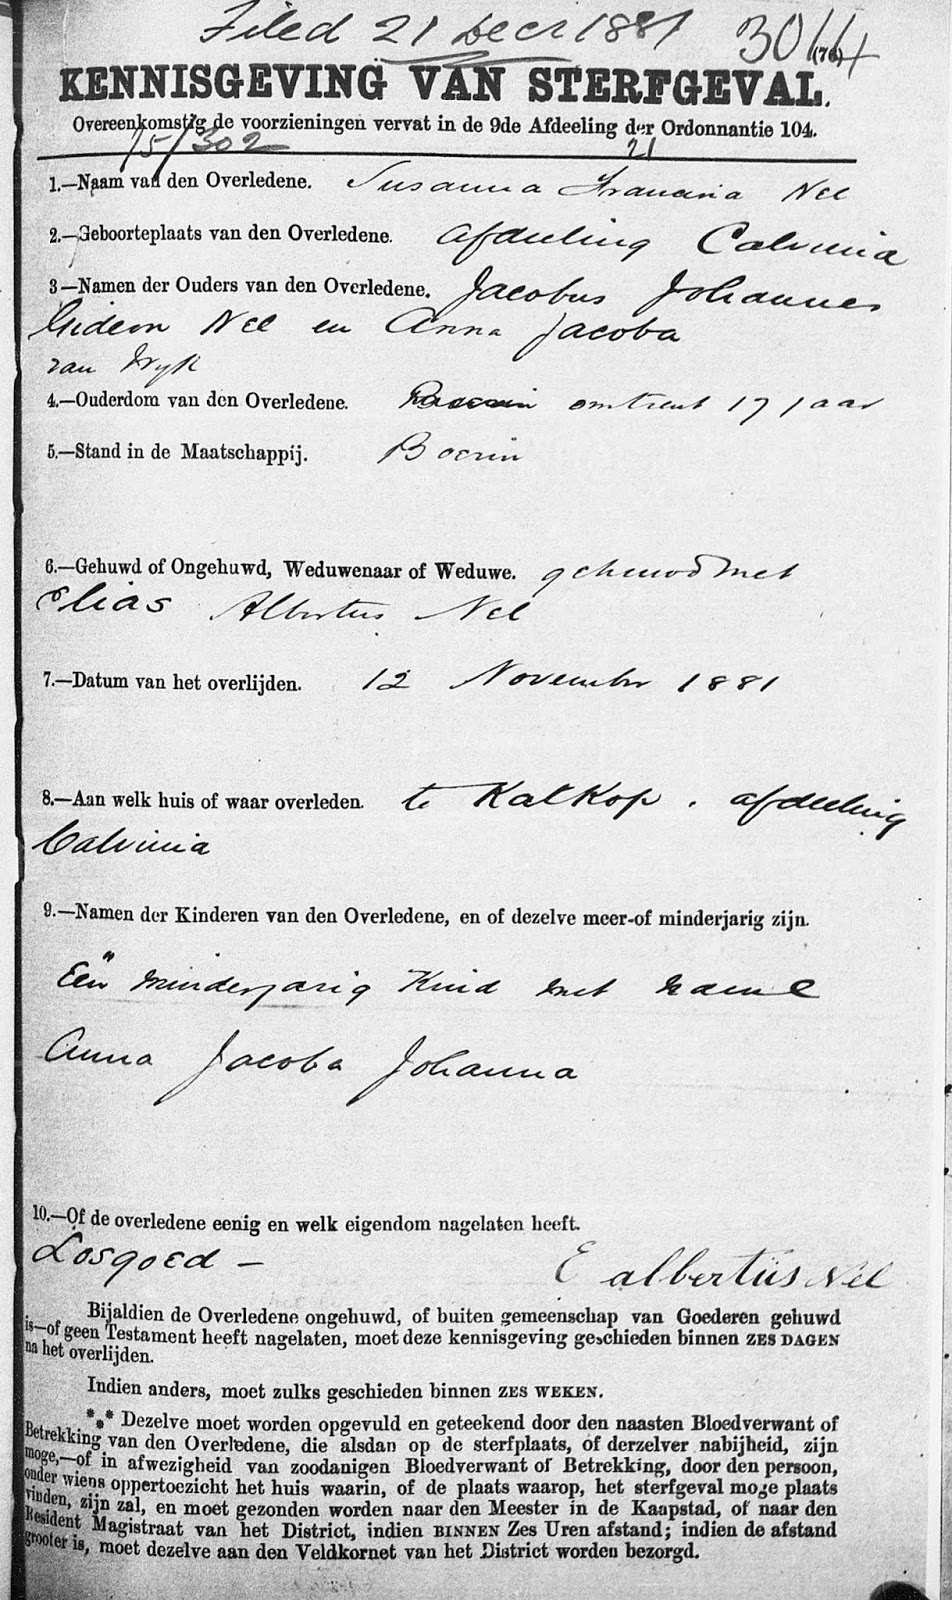 Filed 21 Decr 1881 3044
(76)
KENNISGEVING VAN STERFGEVAL.
Overeenkomstig de voorzieningen vervat in de 9de Afdeeling der Ordonnantie 104.
15/302 21
1.—Naam van den Overledene. Susanna Francina Nel
2.—Geboorteplaats van den Overledene. Afdeeling Calvinia
3—Namen der Ouders van den Overledene. Jacobus Johannes
Gideon Nel en Anna Jacoba
van Wyk
4.—Ouderdom van den Overledene. omtrent 17 jaar
5.—Stand in de Maatschappij. Boerin
6.—Gehuwd of Ongehuwd, Weduwenaar of Weduwe. gehuwd met
Elias Albertus Nel
7.—Datum van het overlijden. 12 November 1881
8.—Aan welk huis of waar overleden. te KalKop. afdeeling
Calvinia
9.—Namen der Kinderen van den Overledene, en of dezelve meer-of minderjarig zijn.
Eën minderjarig Kind met name
Anna Jacoba Johanna
10.—Of de overledene eenig en welk eigendom nagelaten heeft.
Losgoed —
E albertus Nel
Bijaldien de Overledene ongehuwd, of buiten gemeenschap van Goederen gehuwd
is—of geen Testament heeft nagelaten, moet deze kennisgeving geschieden binnen ZES DAGEN
na het overlijden.
Indien anders, moet zulks geschieden binnen ZES WEKEN.
*** Dezelve moet worden opgevuld en geteekend door den naasten Bloedverwant of
Betrekking van den Overledene, die alsdan op de sterfplaats, of derzelver nabijheid, zijn
moge,—of in afwezigheid van zoodanigen Bloedverwant of Betrekking, door den persoon,
onder wiens oppertoezicht het huis waarin, of de plaats waarop, het sterfgeval moge plaats
vinden, zijn zal, en moet gezonden worden naar den Meester in de Kaapstad, of naar den
Resident Magistraat van het District, indien BINNEN Zes Uren afstand; indien de afstand
grooter is, moet dezelve aan den Veldkornet van het District worden bezorgd.